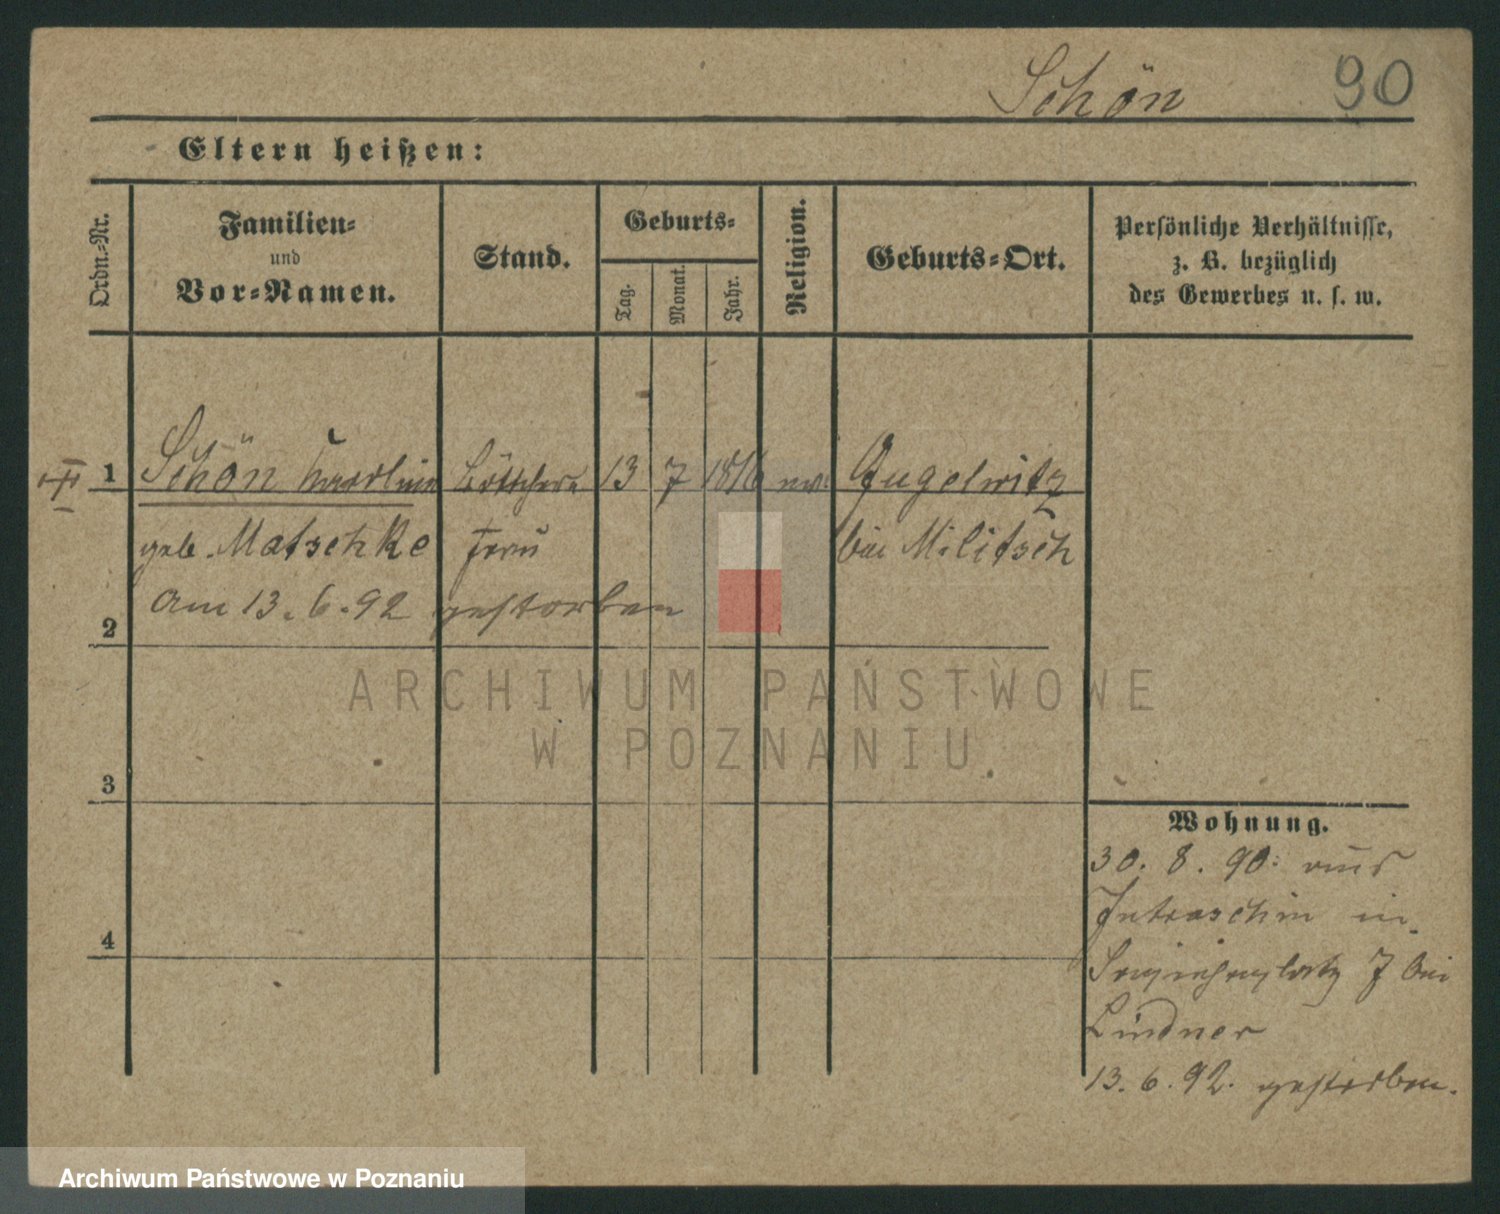 Schön 90
Eltern heißen:
Ordn.-Nr.
Familien-
und
Vor-Namen.
Stand.
Geburts-
Tag.
Monat.
Jahr.
Religion.
Geburts-Ort.
Persönliche Verhältnisse,
z. B. bezüglich
des Gewerbes u. s. w.
1 Schön 13 7 1816 Gugelwitz
geb. Matschke Frau bei Militsch
am 13. 6. 92 gestorben
2
ARCHIWUM PAŃSTWOWE
W POZNANIU
3
Wohnung.
30. 8. 90: aus
Jutroschin in
7 bei
4
Lindner
13. 6. 92. gestorben.
Archiwum Państwowe w Poznaniu